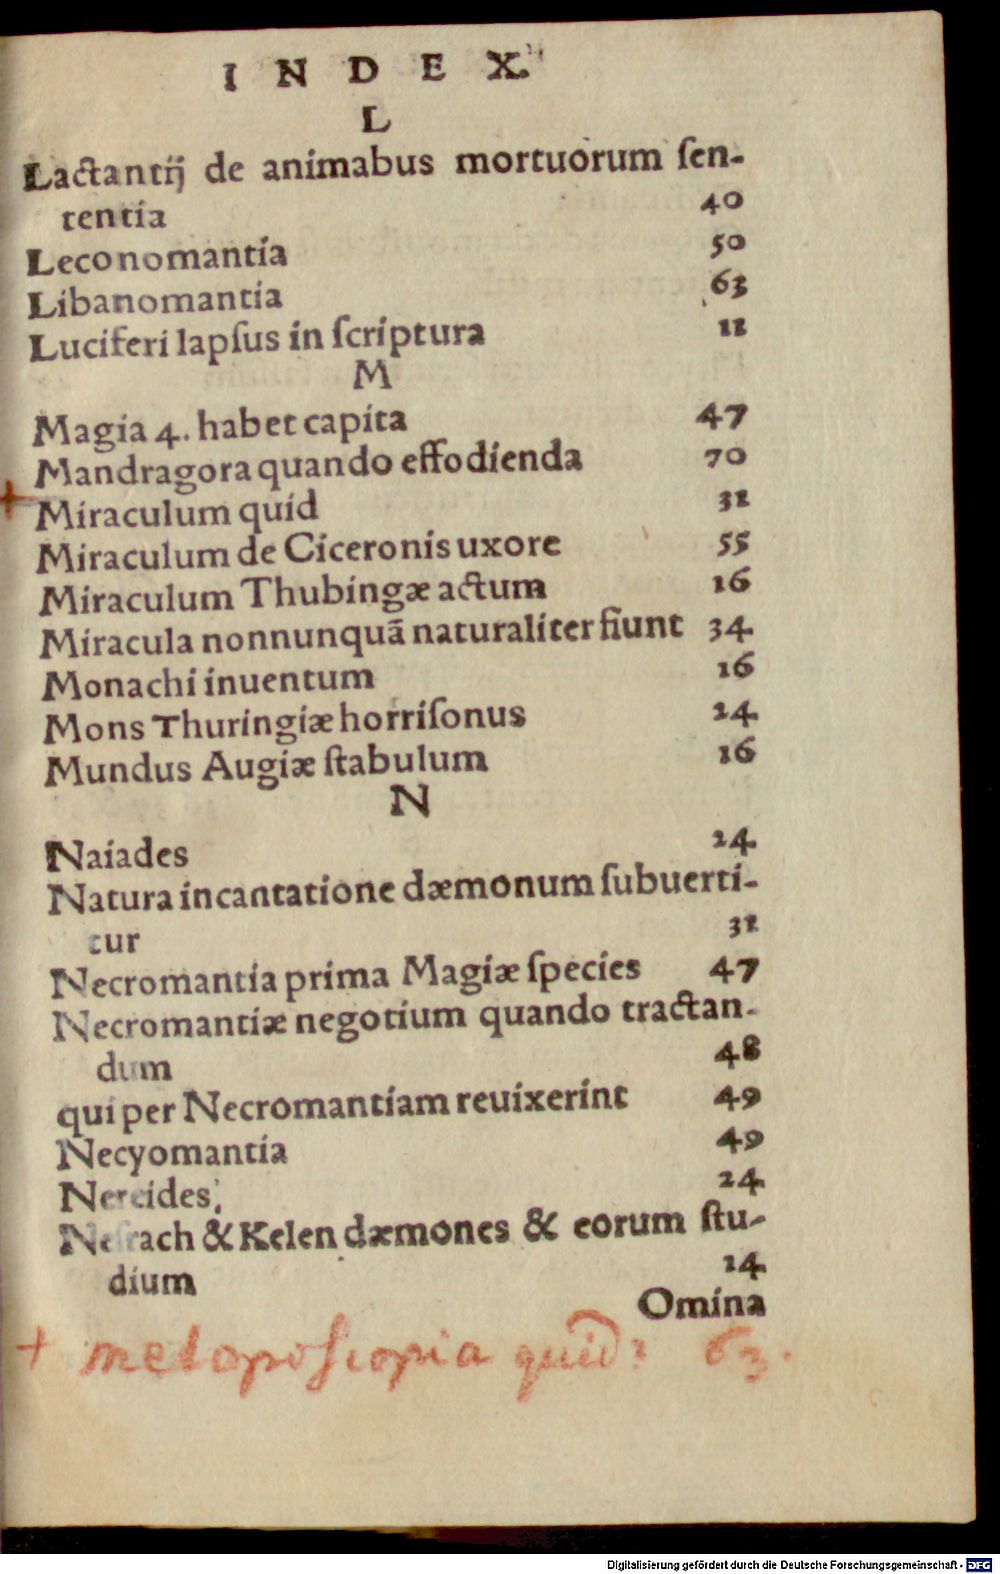 INDEX.
L
Lactantij de animabus mortuorum ſen-
tentia 40
Leconomantia 50
Libanomantia 63
Luciferi lapſus in ſcriptura 12
M
Magia 4. habet capita 47
Mandragora quando effodienda 70
Miraculum quid 32
Miraculum de Ciceronis uxore 55
Miraculum Thubingæ actum 16
Miracula nonnunquã naturaliter fiunt 34.
Monachi inuentum 16
Mons Thuringiæ horriſonus 24.
Mundus Augiæ ſtabulum 16
N
Naiades 24.
Natura incantatione dæmonum ſubuerti-
tur 32
Necromantia prima Magiæ ſpecies 47
Necromantiæ negotium quando tractan-
dum 48
qui per Necromantiam reuixerint 49
Necyomantia 49
Nereides, 24.
Neſrach & Kelen dæmones & eorum ſtu-
dium 24.
Omina
+ metopoſcopia quid? 63.
Digitalisierung gefördert durch die Deutsche Forschungsgemeinschaft - DFG